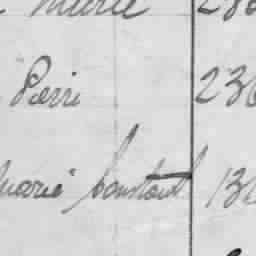 Marie 28
Pierri 236
Marie Constant 13